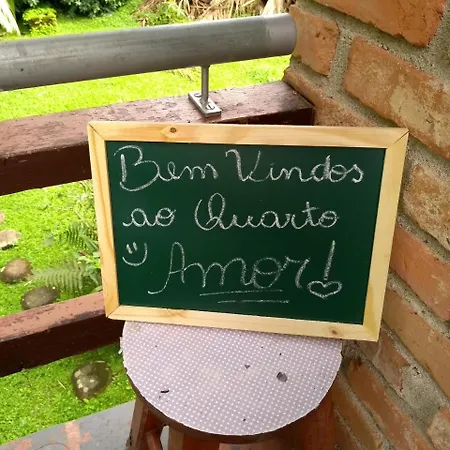 Bem Vindos
ao Quarto
Amor!